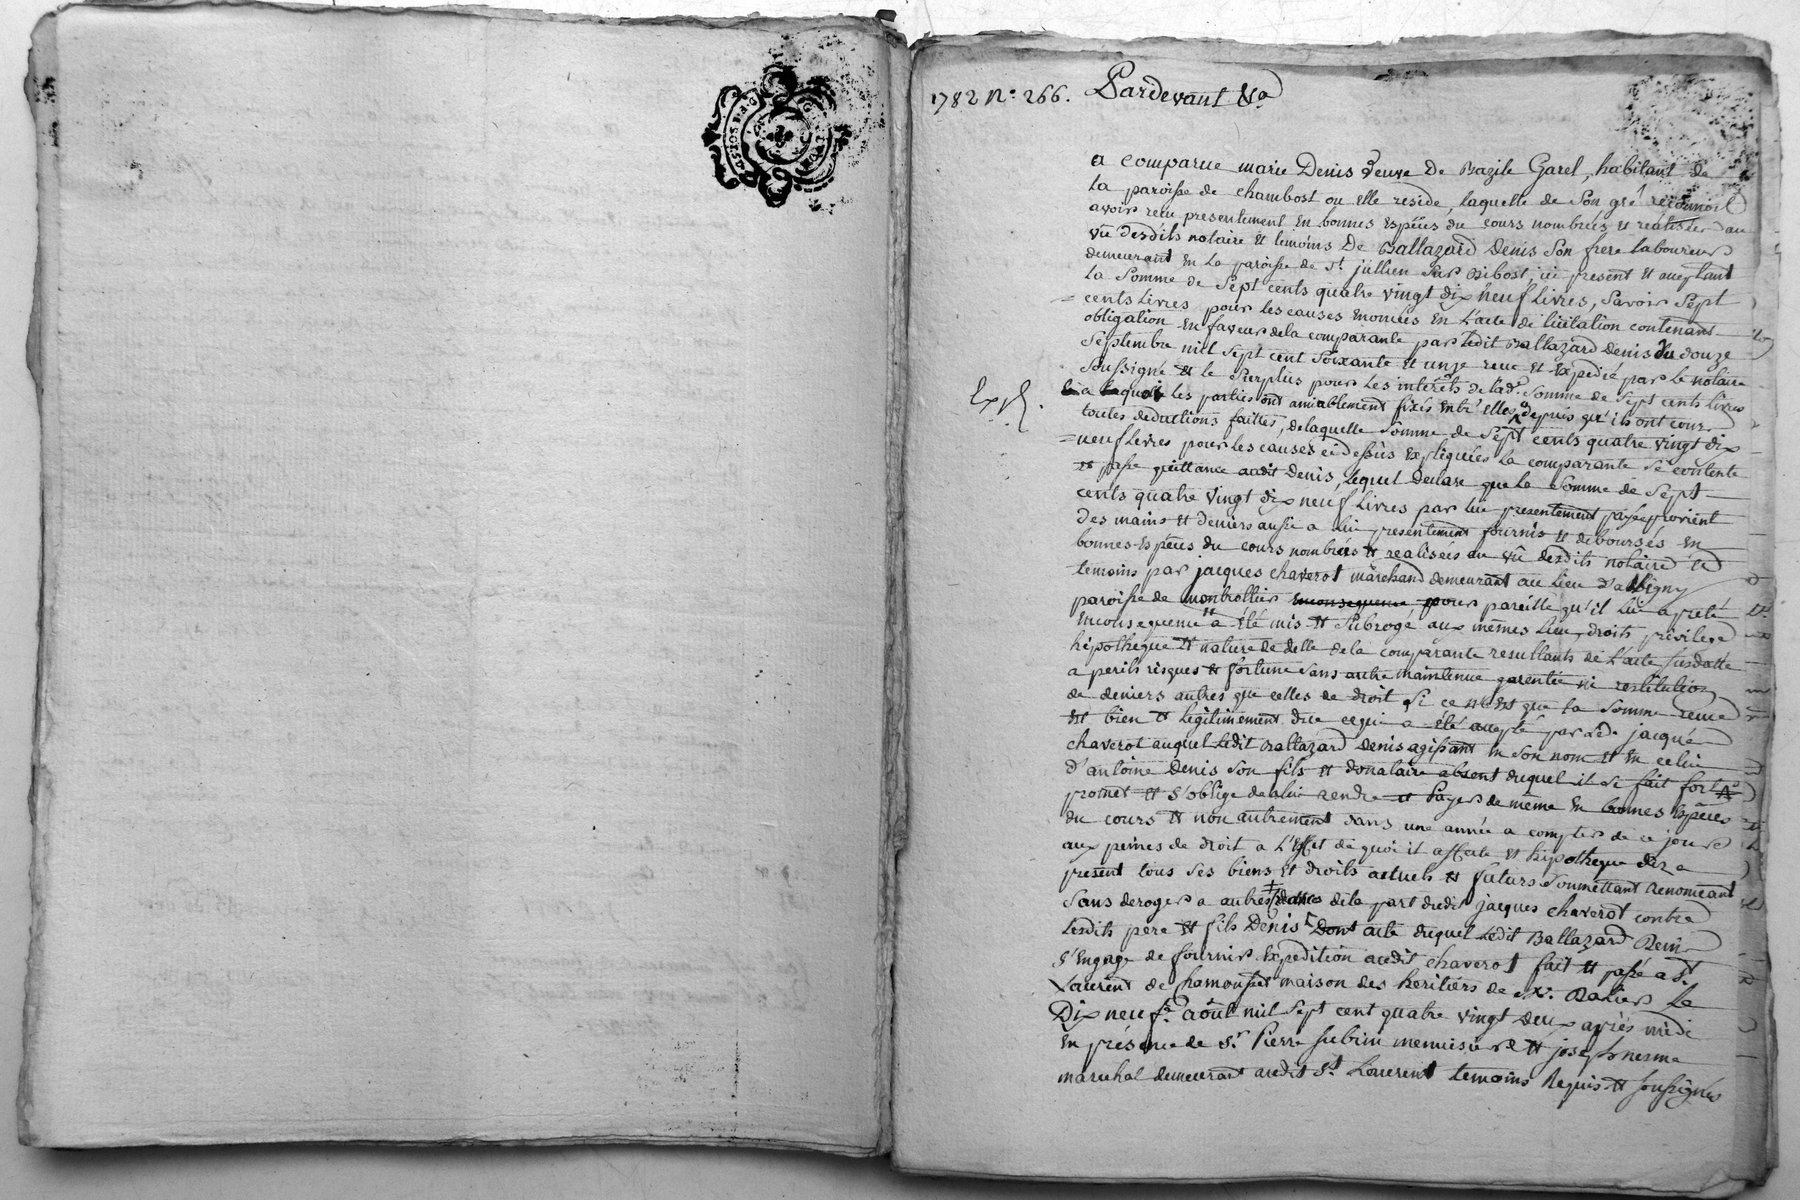 1782 n.° 266. Pardevant &a
a comparue marie Denis veuve De Bazile Garel, habitant De
la paroisse de chambost ou elle reside, laquelle de son gré reconnoit
avoir reçu presentement En bonnes Espéces du cours nombrées et realisées au
vû desdits notaire Et temoins De Ballazard Denis son frere laboureur
demeurant En la paroisse de St. jullien sur Bibost, ici present Et aceptant
la somme de sept cents quatre vingt dix neuf Livres, savoir sept
= cents Livres pour les causes Enoncées En L'acte de licitation contenant
obligation En faveur de la comparante par ledit Ballazard Denis du douze
septembre mil sept cent soixante Et onze reçu Et Expedié par le notaire
soussigné Et le surplus pour les interêts de lad.e somme de sept cents livres
Exp.
a laquoi les parties ont amiablement fixés Entr'elles depuis qu'ils ont cour
toutes deductions faittes, de laquelle somme de sept cents quatre vingt dix
= neuf Livres pour les causes ci dessus Expliquées La comparante se contente
et passe quittance audit Denis, lequel declare que la somme de sept
cents quatre vingt dix neuf Livres par lui presentement payée provient
des mains Et deniers aussi a lui presentement fournis Et deboursés En
bonnes Espéces du cours nombrées Et realisées au vû desdits notaire Et
temoins par jacques chaverot marchand demeurant au lieu d'albigny
paroisse de montrottier Enconsequence pour pareille qu'il lui a preté
Enconsequence a été mis Et subrogé aux mêmes Lieu, droits privilege
hipotheque Et nature de dette de la comparante resultants de L'acte susdatté
a perils risques Et fortune sans autre maintenue garentie ni restitution
de deniers autres que celles de droit si ce n'Est que la somme reçue
Est bien Et legitimement due ce qui a été acepté par led. jacques
chaverot auquel ledit Ballazard Denis agissant En son nom Et En celui
d'antoine Denis son fils Et donataire absent duquel il se fait fort
promet Et s'oblige de lui rendre Et Payer de même En bonnes Espéces
du cours Et non autrement dans une année a compter de ce jour
aux peines de droit a L'Effet de quoi il affecte Et hipotheque dez a
present tous ses biens Et droits actuels Et futurs soumettant Renonceant
sans deroger a autres de la part dudit jacques chaverot contre
lesdits pere Et fils Denis Dont acte duquel ledit Ballazard Denis
s'Engage de fournir Expedition audit chaverot fait Et passé a St
Laurent de chamousset maison des heritiers de Me. Ranier Le
Dix neuf aôut mil sept cent quatre vingt Deux après midi
En présence de Sr. Pierre subrin menuisier Et joseph nesme
marechal demeurant audit St. Laurent temoins Requis Et soussignés